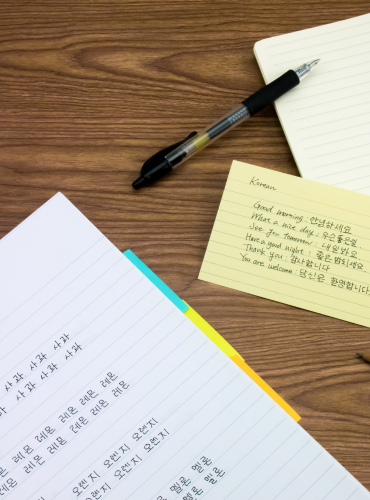 Korean
Good morning : 안녕하세요
What a nice day : 우슨좋은일
See you tomorrow : 내일봐요
Have a good night : 좋은밤되세요
Thank you : 감사합니다
You are welcome : 당신은 환영합니다
사과 사과 사과
사과 사과 사과
레몬 레몬 레몬 레몬
레몬 레몬 레몬 레몬
오렌지 오렌지 오렌지
오렌지 오렌지 오렌지
멜론 멜론
멜론 멜론